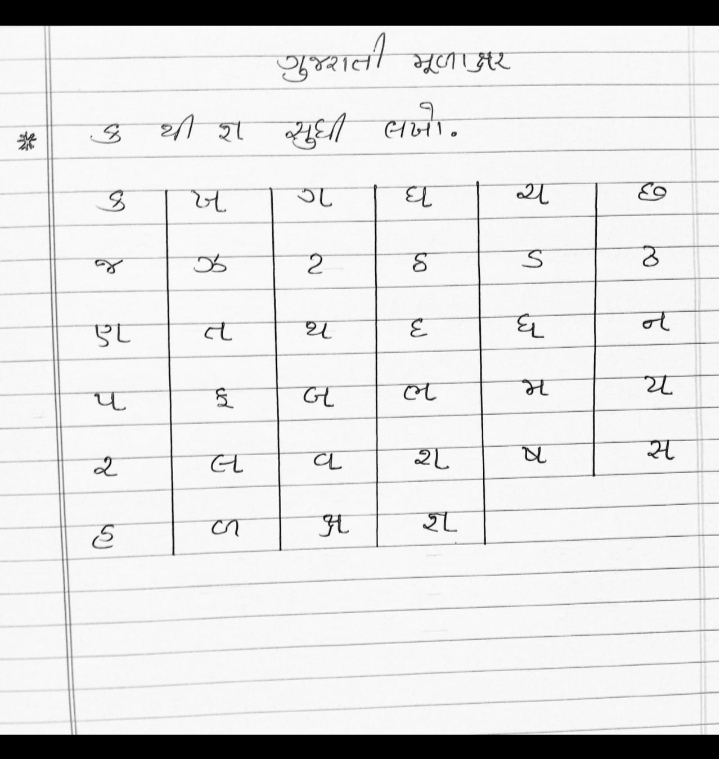 ગુજરાતી મૂળાક્ષર
* ક થી જ્ઞ સુધી લખો.
ક ખ ગ ઘ ચ છ
જ ઝ ટ ઠ ડ ઢ
ણ ત થ દ ધ ન
પ ફ બ ભ મ ય
ર લ વ શ ષ સ
હ ળ ક્ષ જ્ઞ